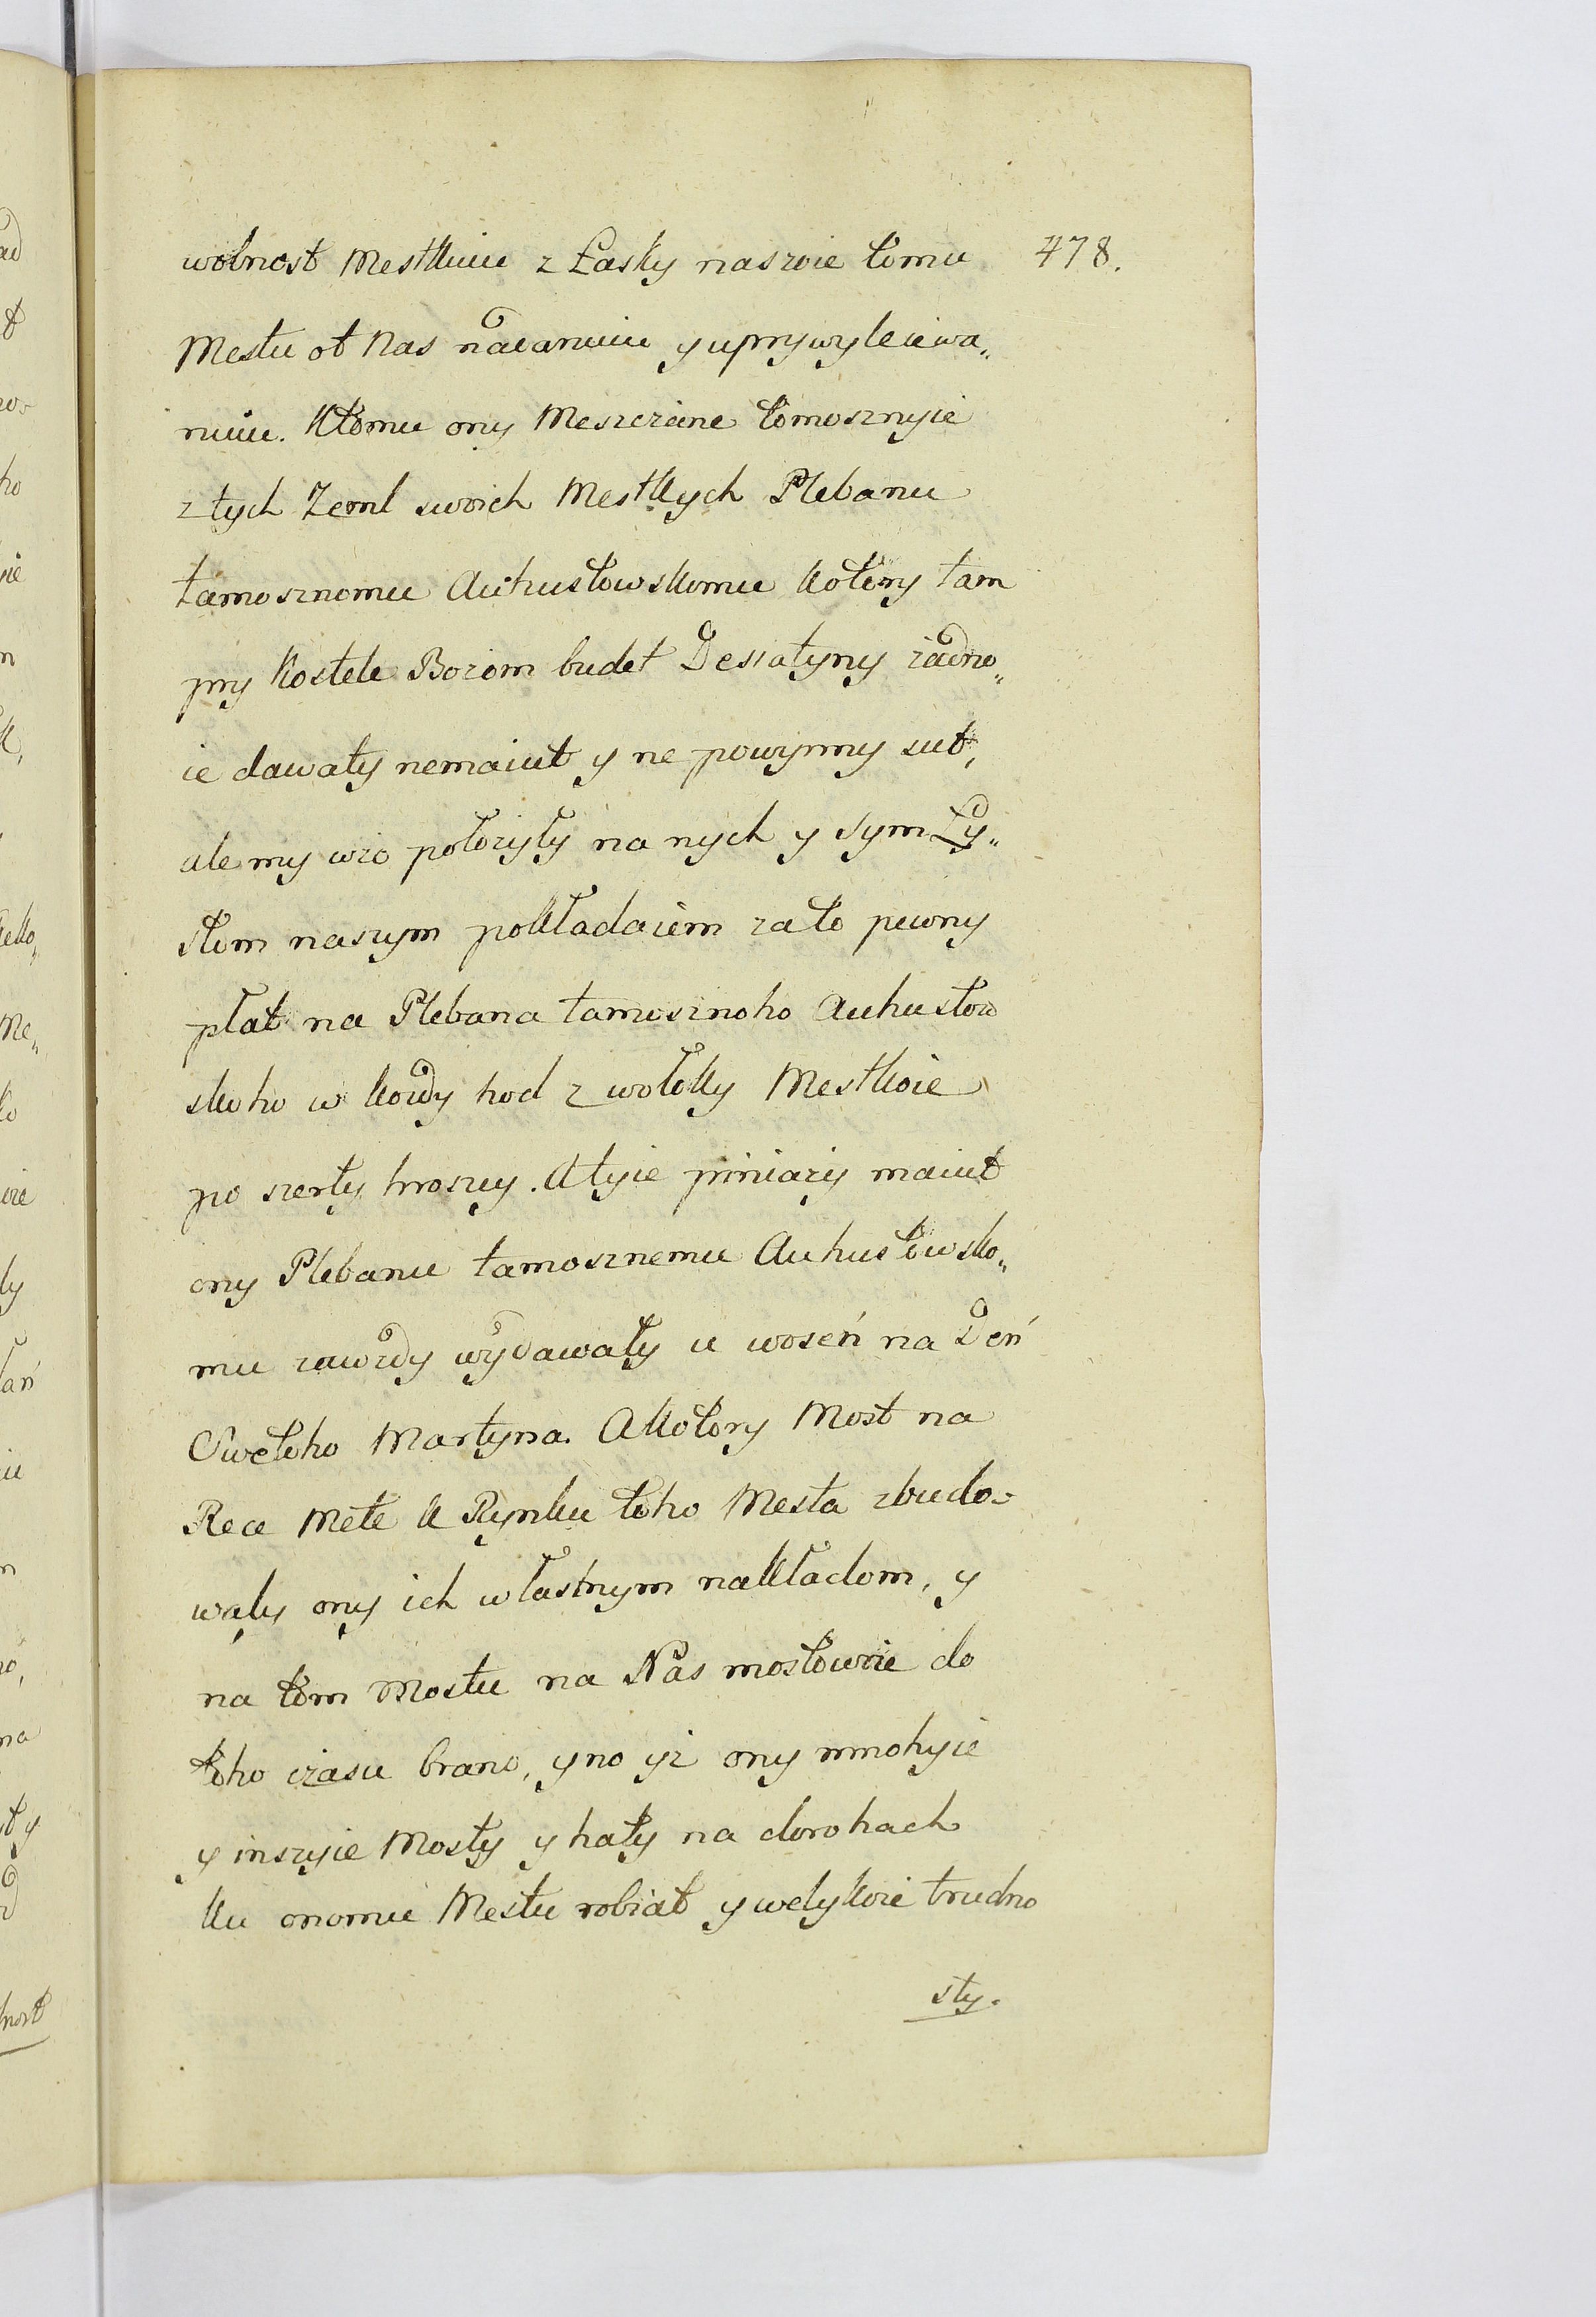 wolnost Mestkuiu z Łasky naszoie tomu 478.
Mestu ot Nas nadanuiu y uprywyleiewa„
nuiu. Ktomu ony Meszczane tomosznyie
z tych Zeml swoich Mestkych Plebanu
tamosznomu Auhustowskomu kotory tam
pry kostele Bozom budet Desiatyny żadno„
ie dawaty nemaiut y ne powynny sut,
ale my wżo połozyły na nych y sym Ly„
stom naszym pokładaiem za to pewny
płat na Plebana tamosznoho Auhustow
skoho w kożdy hod z wołoky Mestkoie
po szesty hroszy. A tyie piniazy maiut
ony Plebanu tamosznemu Auhustowsko„
mu zawżdy wydawaty u woseń na Deń
Swetoho Martyna. A kotory Most na
Rece Mete k Rynku toho Mesta zbudo-
waly ony ich własnym nakładom, y
na tom Mostu na Nas mostowoie do
toho czasu brano, yno yż ony mnohyie
y inszyie Mosty y haty na dorohach
ku onomu Mestu robiat y welykoie trudno
sty.